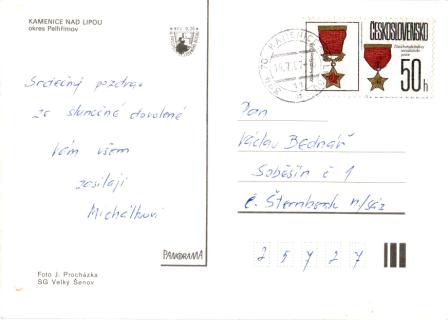 KAMENICE NAD LIPOU
okres Pelhřimov
KČS 0,30
ČESKOSLOVENSKO
50 h
KAMENICE
Srdečný pozdrav
ze slunečné dovolené
Vám všem
zasílají
Michálkovi
Pan
Václav Bednář
Soběšín č 1
č. Šternberk n/Sáz
2 5 7 2 7
PANORAMA
Foto J. Procházka
SG Velký Šenov